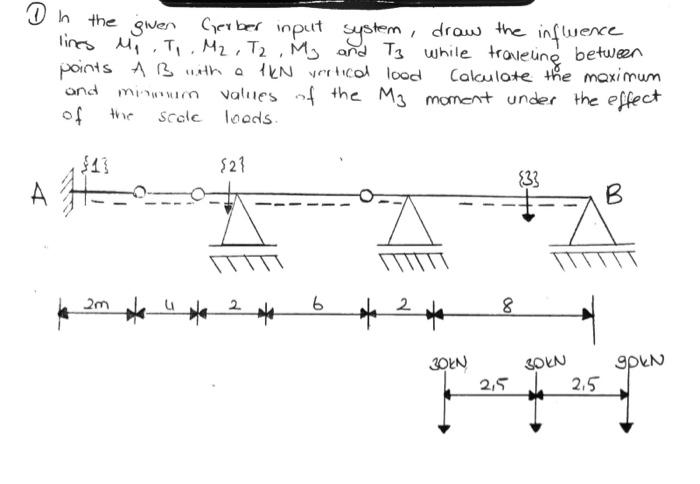 ① In the given Gerber input system, draw the influence
lines M₁, T₁, M₂, T₂, M₃ and T₃ while traveling between
points A B with a 1kN vertical load Calculate the maximum
and minimum values of the M₃ moment under the effect
of the scale loads.
{1} {2} {3}
A B
2m 4 2 6 2 8
30kN 30kN 90kN
2,5 2,5